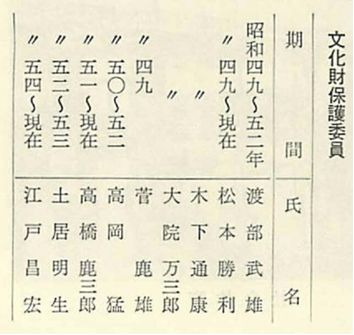 文化財保護委員
期間 氏名
昭和四九〜五二年 渡部武雄
〃 四九〜現在 松本勝利
〃 木下通康
〃 大院万三郎
〃 四九 菅鹿雄
〃 五〇〜五二 高岡猛
〃 五一〜現在 高橋鹿三郎
〃 五二〜五三 土居明生
〃 五四〜現在 江戸昌宏